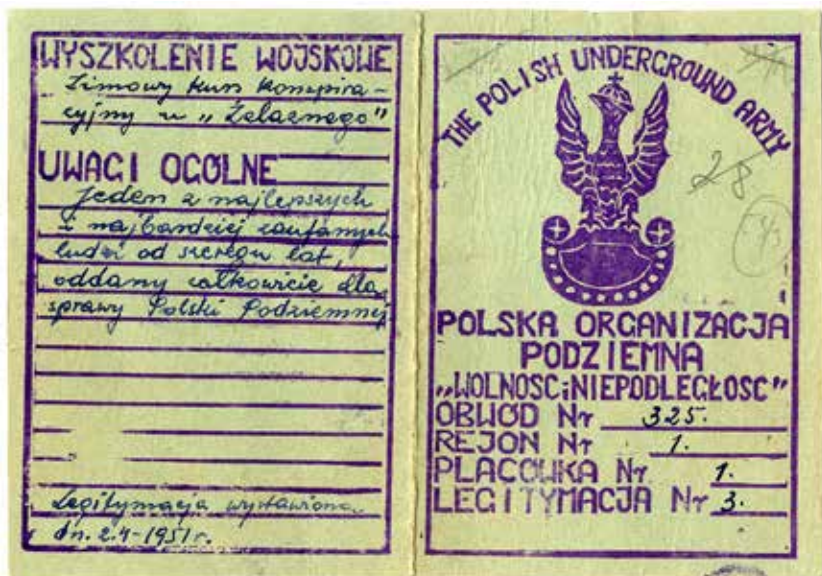 WYSZKOLENIE WOJSKOWE
Zimowy kurs konspira-
cyjny u "Żelaznego"
UWAGI OGÓLNE
Jeden z najlepszych
i najbardziej zaufanych
ludzi od szeregu lat,
oddany całkowicie dla
sprawy Polski Podziemnej
Legitymacja wystawiona
dn. 2.4-1951 r.
THE POLISH UNDERGROUND ARMY
28
POLSKA ORGANIZACJA
PODZIEMNA
„WOLNOŚĆ i NIEPODLEGŁOŚĆ"
OBWÓD Nr 325.
REJON Nr 1.
PLACÓWKA Nr 1.
LEGITYMACJA Nr 3.